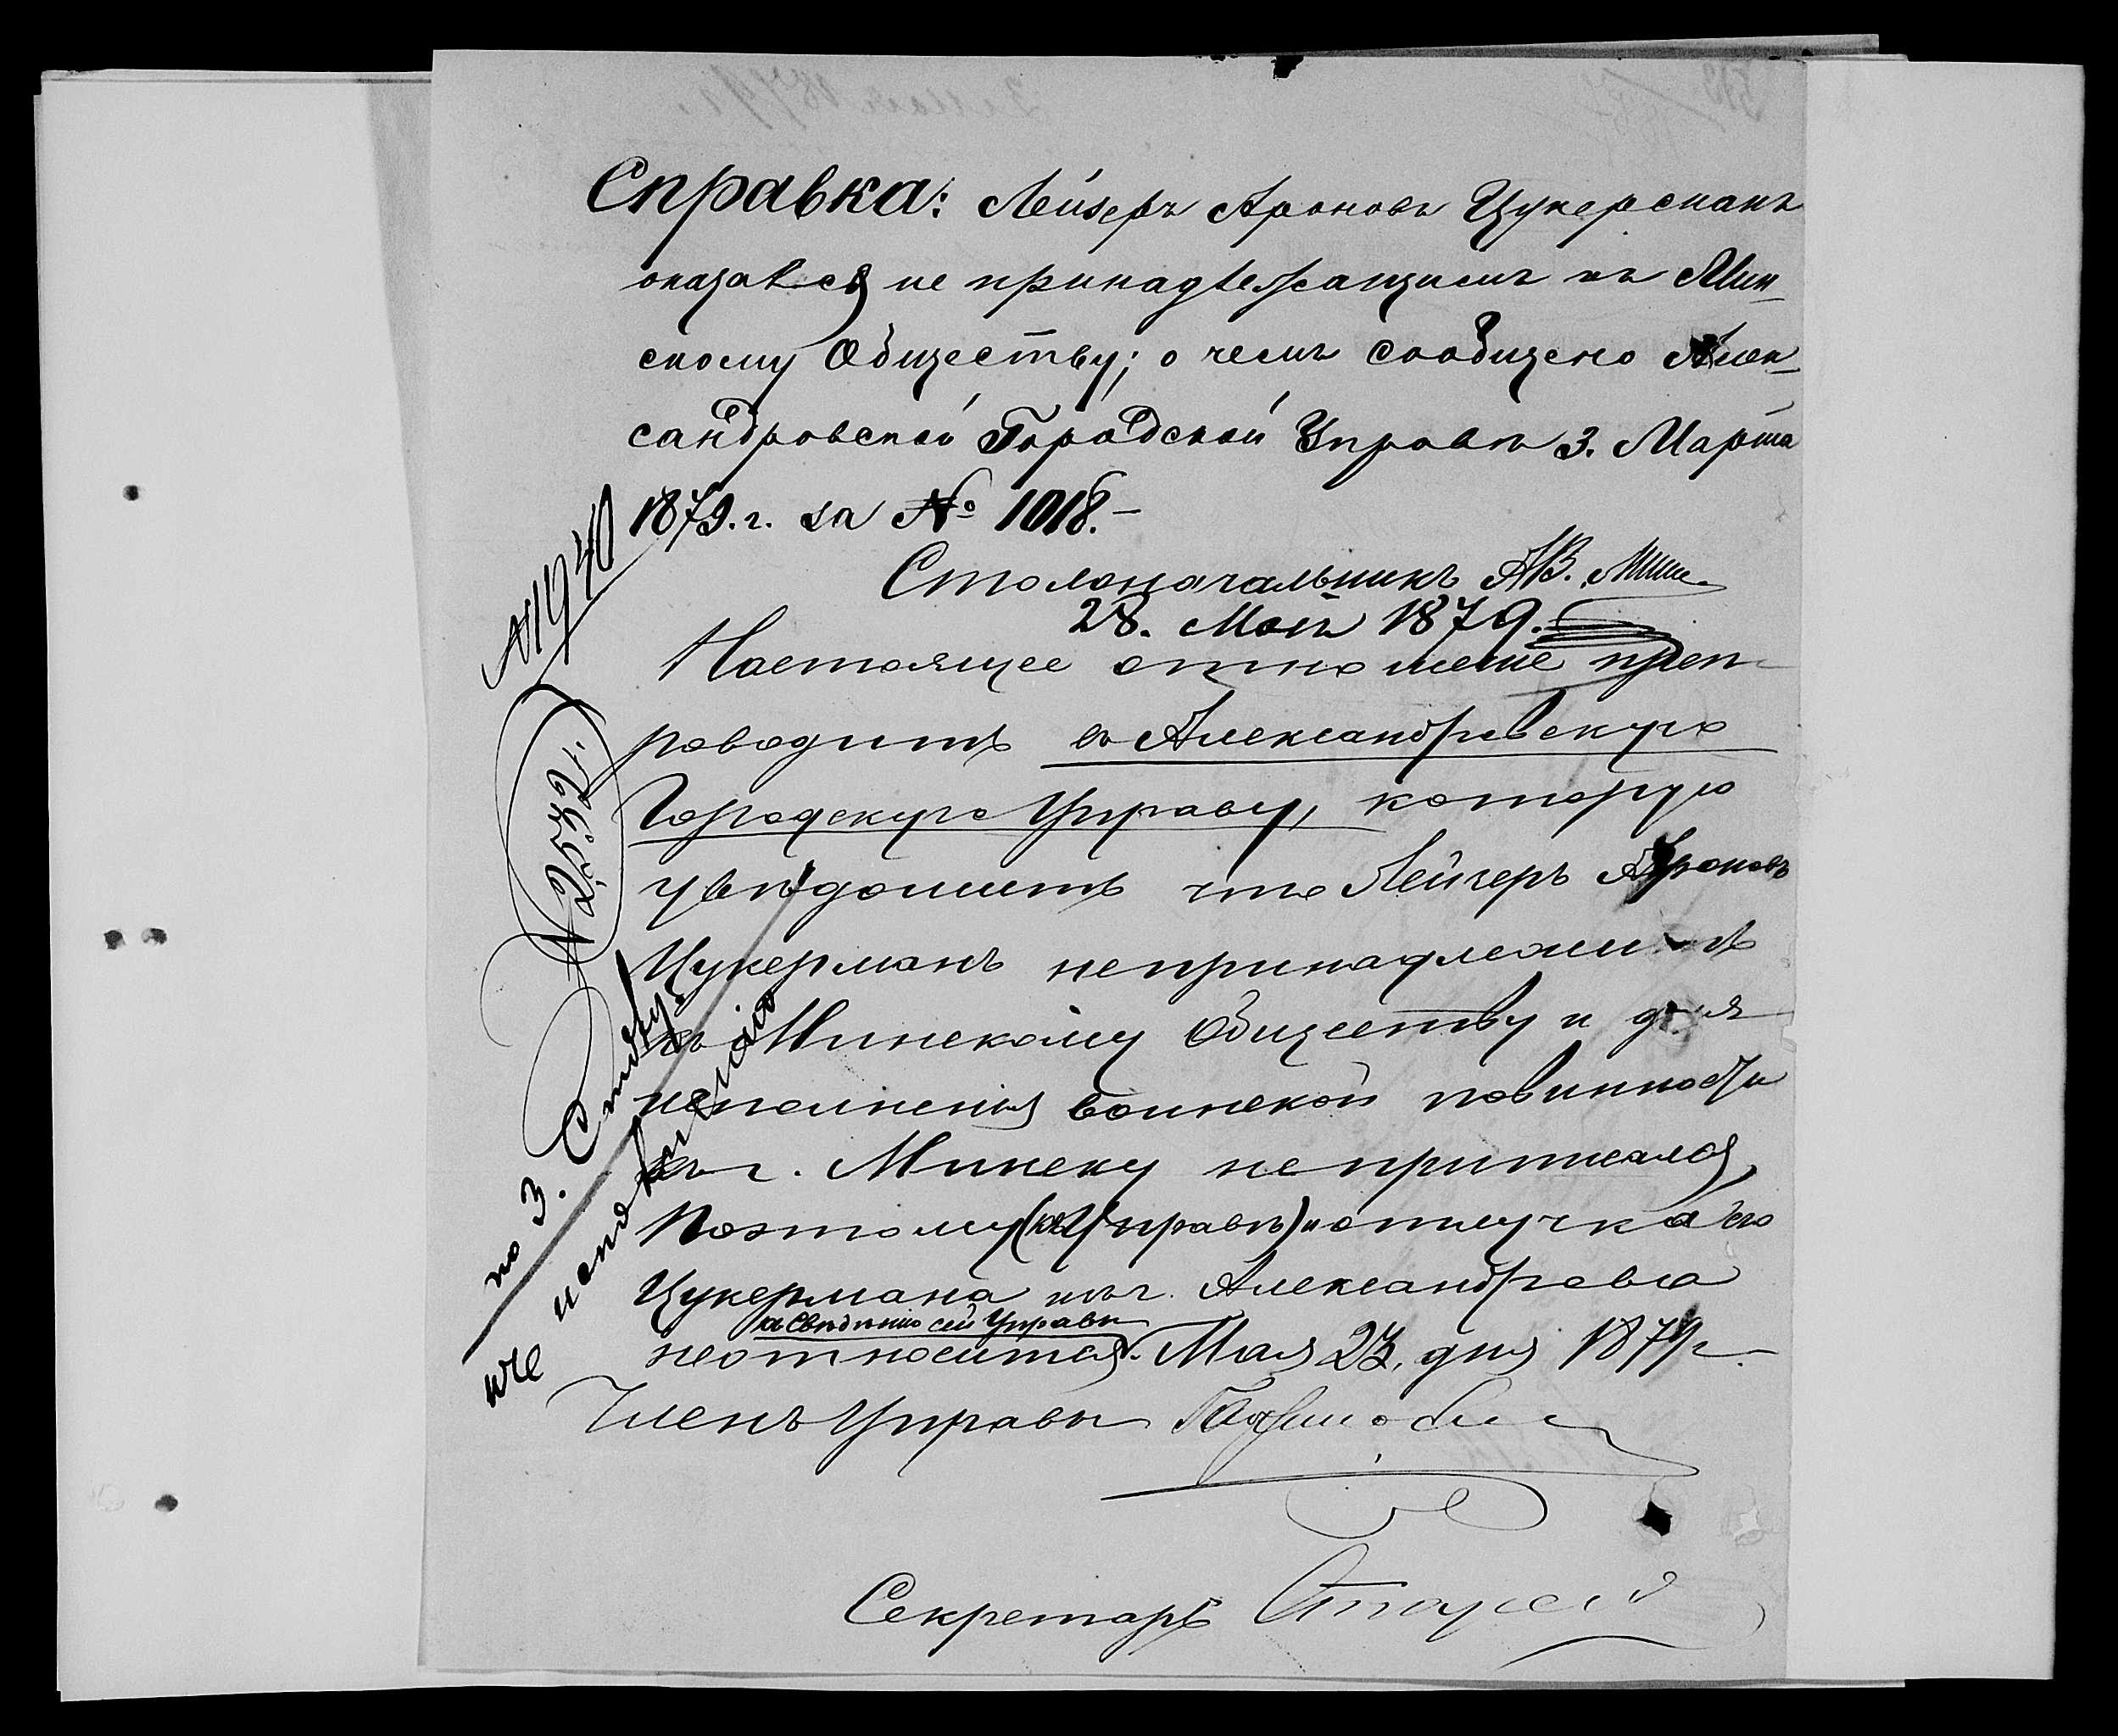 Справка: Лейзеръ Ароновъ Цукерманъ
оказался не принадлежащимъ къ Мин-
скому Обществу; о чемъ сообщено Алек-
сандровской Городской Управѣ 3. Марта
1879. г. за № 1018.-
Столоначальникъ
28. Мая 1879.
Настоящее отношеніе преп-
роводить въ Александровскую
Городскую Управу, которую
увѣдомить что Лейзеръ Ароновъ
Цукерманъ непринадлежитъ
къ Минскому Обществу и для
исполненія воинской повинности
къ г. Минску неприписался,
Поэтому (къ Управѣ) и отлучка его
Цукермана изъ г. Александровска
къ Свѣденію сей Управы
неотносится. Мая 23, дня 1879 г.
Членъ Управы
Секретарь
№ 1940
по 3. Столу